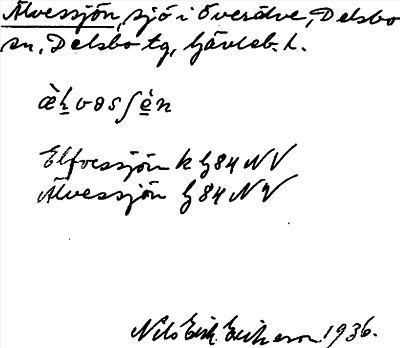 Älvessjön, sjö i Överälve, Delsbo
sn, Delsbo tg, Gävleb. l.
æ̀ḷvəsʃö̀n
Elfvessjön k G84 NV
Älvessjön G84 NV
Nils Erik Eriksson 1936.